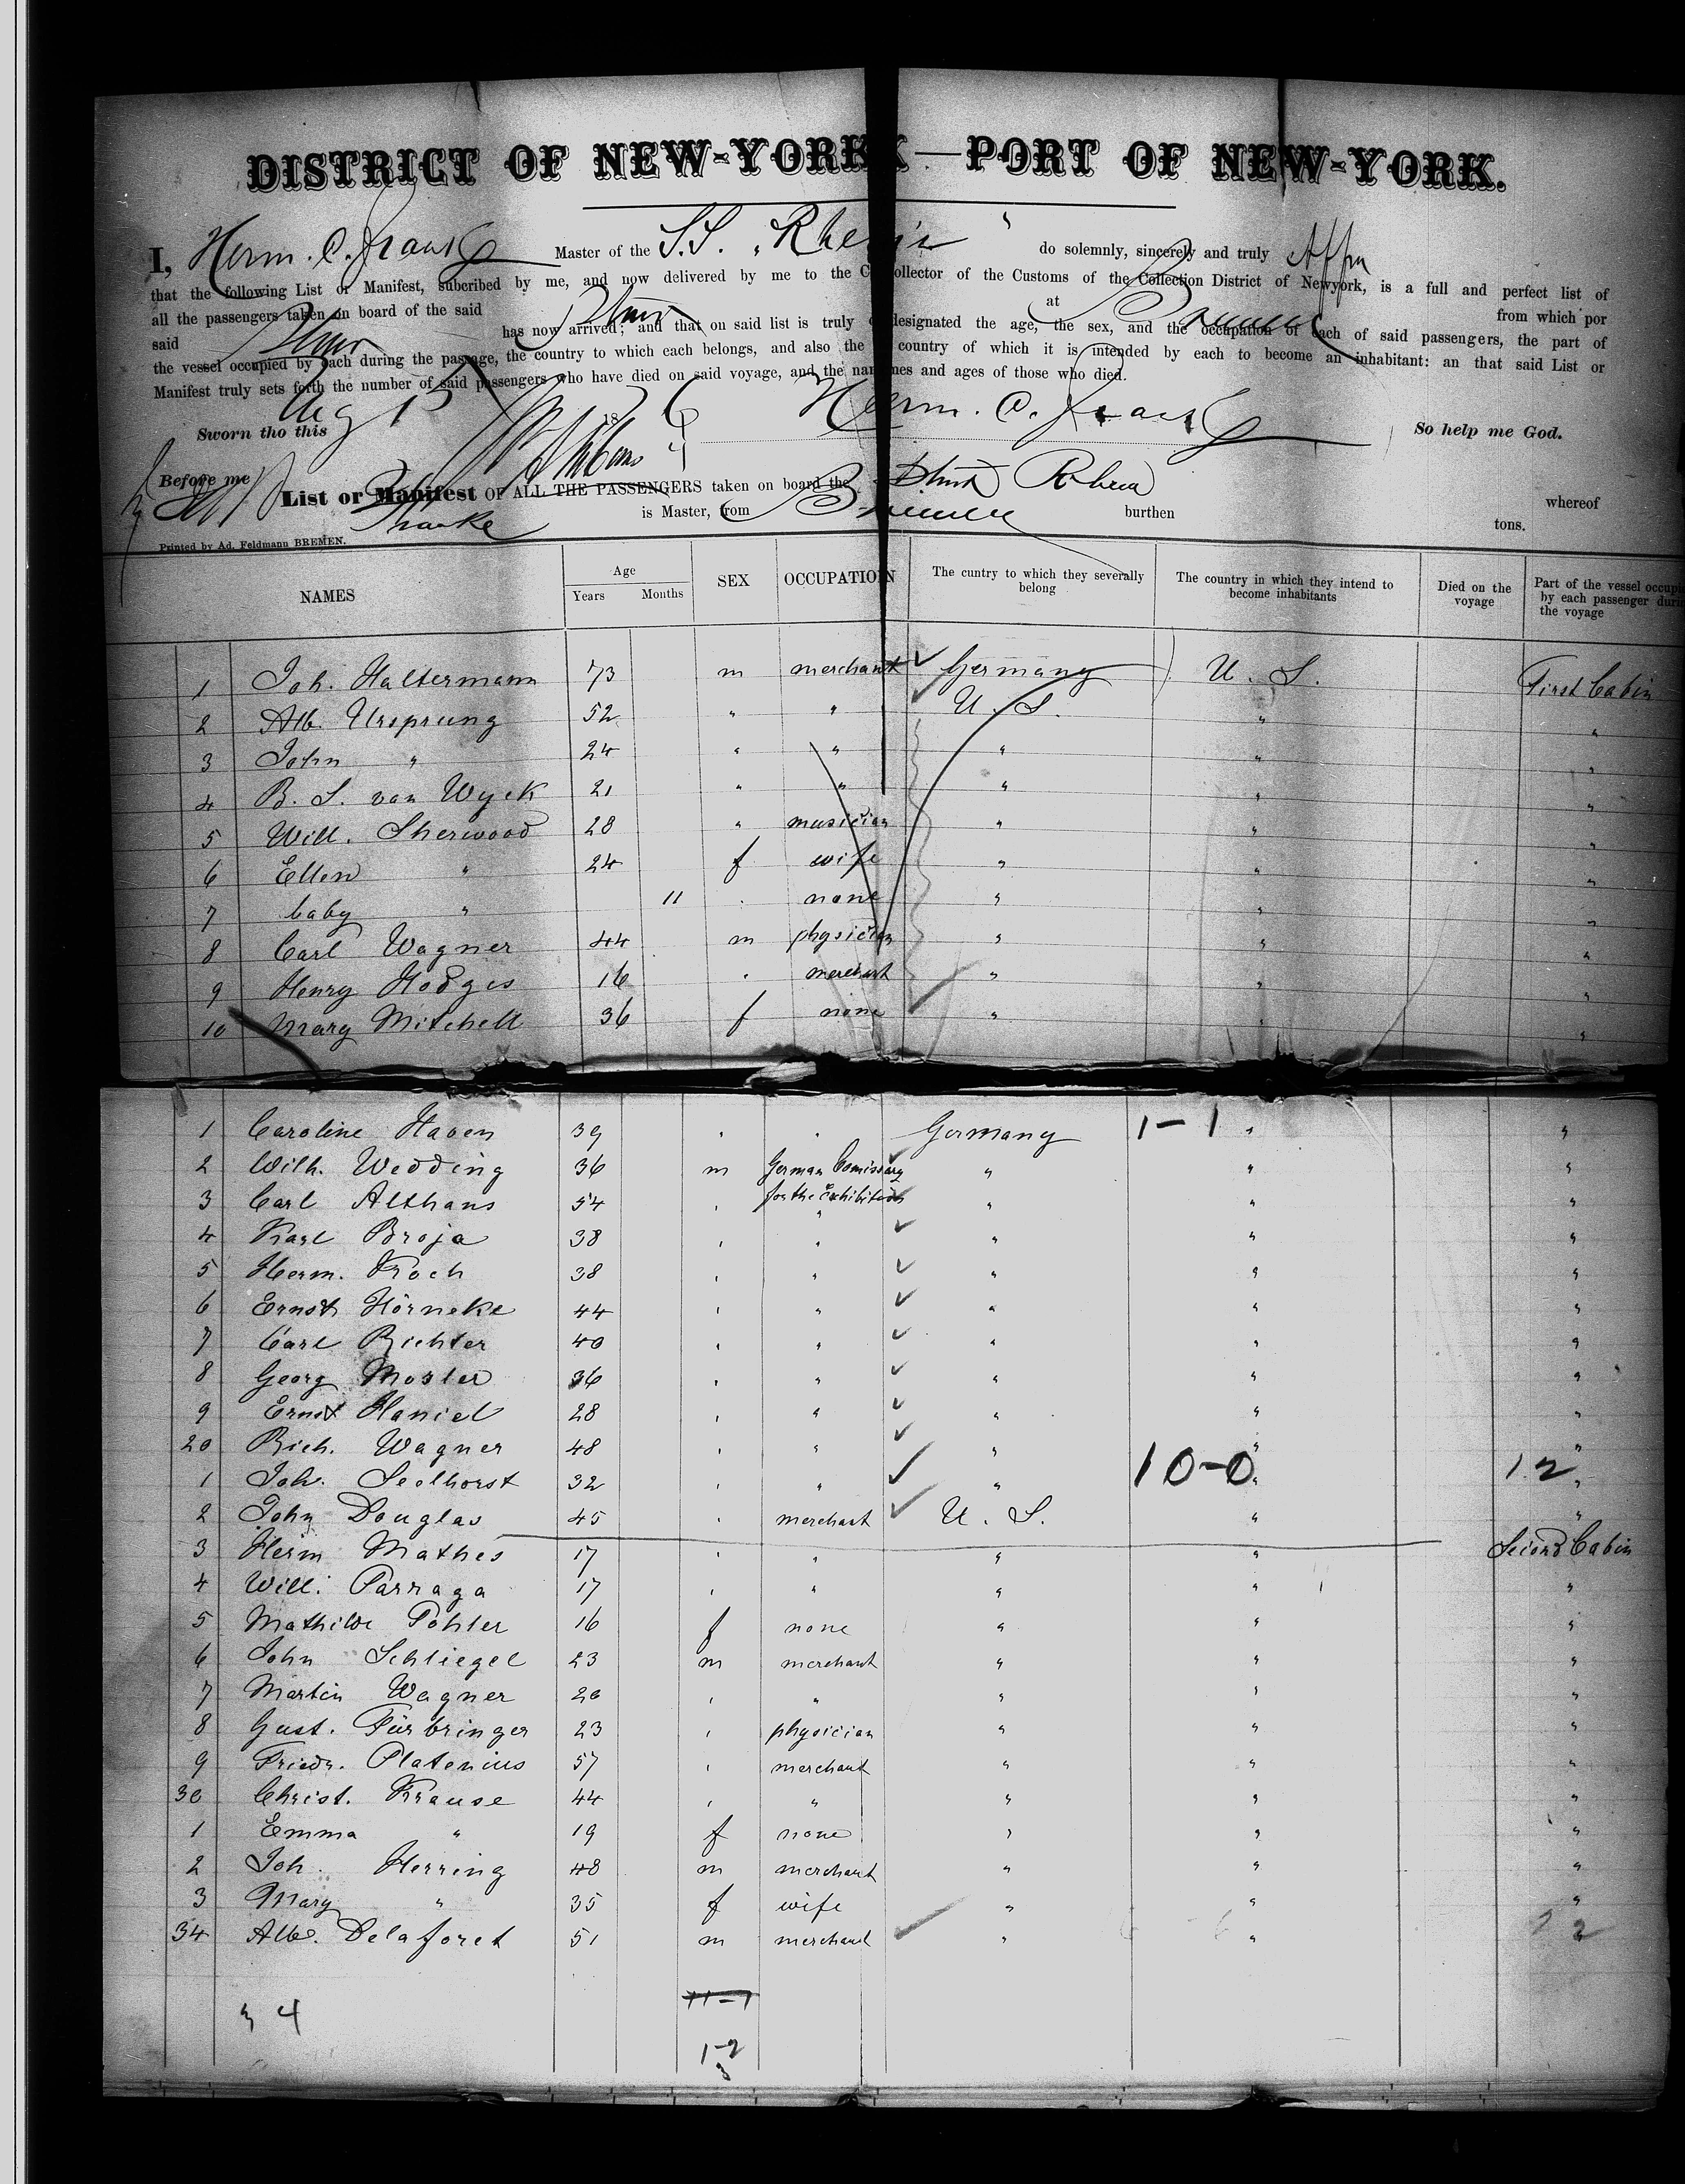 DISTRICT OF NEW-YORK—PORT OF NEW-YORK.
I, Herm. C. Franke Master of the S.S. "Rhein" do solemnly, sincerely and truly Affm
that the following List or Manifest, subcribed by me, and now delivered by me to the Collector of the Customs of the Collection District of Newyork, is a full and perfect list of
all the passengers taken on board of the said Stmr at Bremen from which por
said Stmr has now arrived; and that on said list is truly designated the age, the sex, and the occupation of each of said passengers, the part of
the vessel occupied by each during the passage, the country to which each belongs, and also the country of which it is intended by each to become an inhabitant: an that said List or
Manifest truly sets forth the number of said passengers who have died on said voyage, and the names and ages of those who died.
Sworn tho this Aug 15 1876 Herm. C. Franke So help me God.
Before me
List or Manifest OF ALL THE PASSENGERS taken on board the Stmr Rhein whereof
Franke is Master, from Bremen burthen tons.
Printed by Ad. Feldmann BREMEN.
NAMES Age Years Months SEX OCCUPATION The cuntry to which they severally belong The country in which they intend to become inhabitants Died on the voyage Part of the vessel occupi by each passenger durin the voyage
1 Joh. Haltermann 73 m merchant Germany U. S. First Cabin
2 Alb. Ursprung 52 " " U. S. " "
3 John " 24 " " " " "
4 B. S. van Wyck 21 " " " " "
5 Will. Sherwood 28 " musician " " "
6 Ellen " 24 f wife " " "
7 baby " 11 " none " " "
8 Carl Wagner 44 m physician " " "
9 Henry Hodges 16 " merchant " " "
10 Mary Mitchell 36 f none " " "
1 Caroline Haven 39 " " Germany 1-1 " "
2 Wilh. Wedding 36 m German Comissary " " "
for the Exhibition
3 Carl Althans 54 " " " " "
4 Karl Broja 38 " " " " "
5 Herm. Koch 38 " " " " "
6 Ernst Hörneke 44 " " " " "
7 Carl Richter 40 " " " " "
8 Georg Mosler 36 " " " " "
9 Ernst Haniel 28 " " " " "
20 Rich. Wagner 48 " " " " "
1 Joh. Seelhorst 32 " " " 10-0 " 12 "
2 John Douglas 45 " merchant U. S. " "
3 Herm Mathes 17 " " " " Second Cabin
4 Will. Parraga 17 " " " " "
5 Mathilde Pohler 16 f none " " "
6 John Schliegel 23 m merchant " " "
7 Martin Wagner 20 " " " " "
8 Gust. Fürbringer 23 " physician " " "
9 Friedr. Platenius 57 " merchant " " "
30 Christ. Krause 44 " " " " "
1 Emma " 19 f none " " "
2 Joh. Herring 48 m merchant " " "
3 Mary " 35 f wife " " "
34 Alb. Delaforet 51 m merchant " " "
11-1
1-2